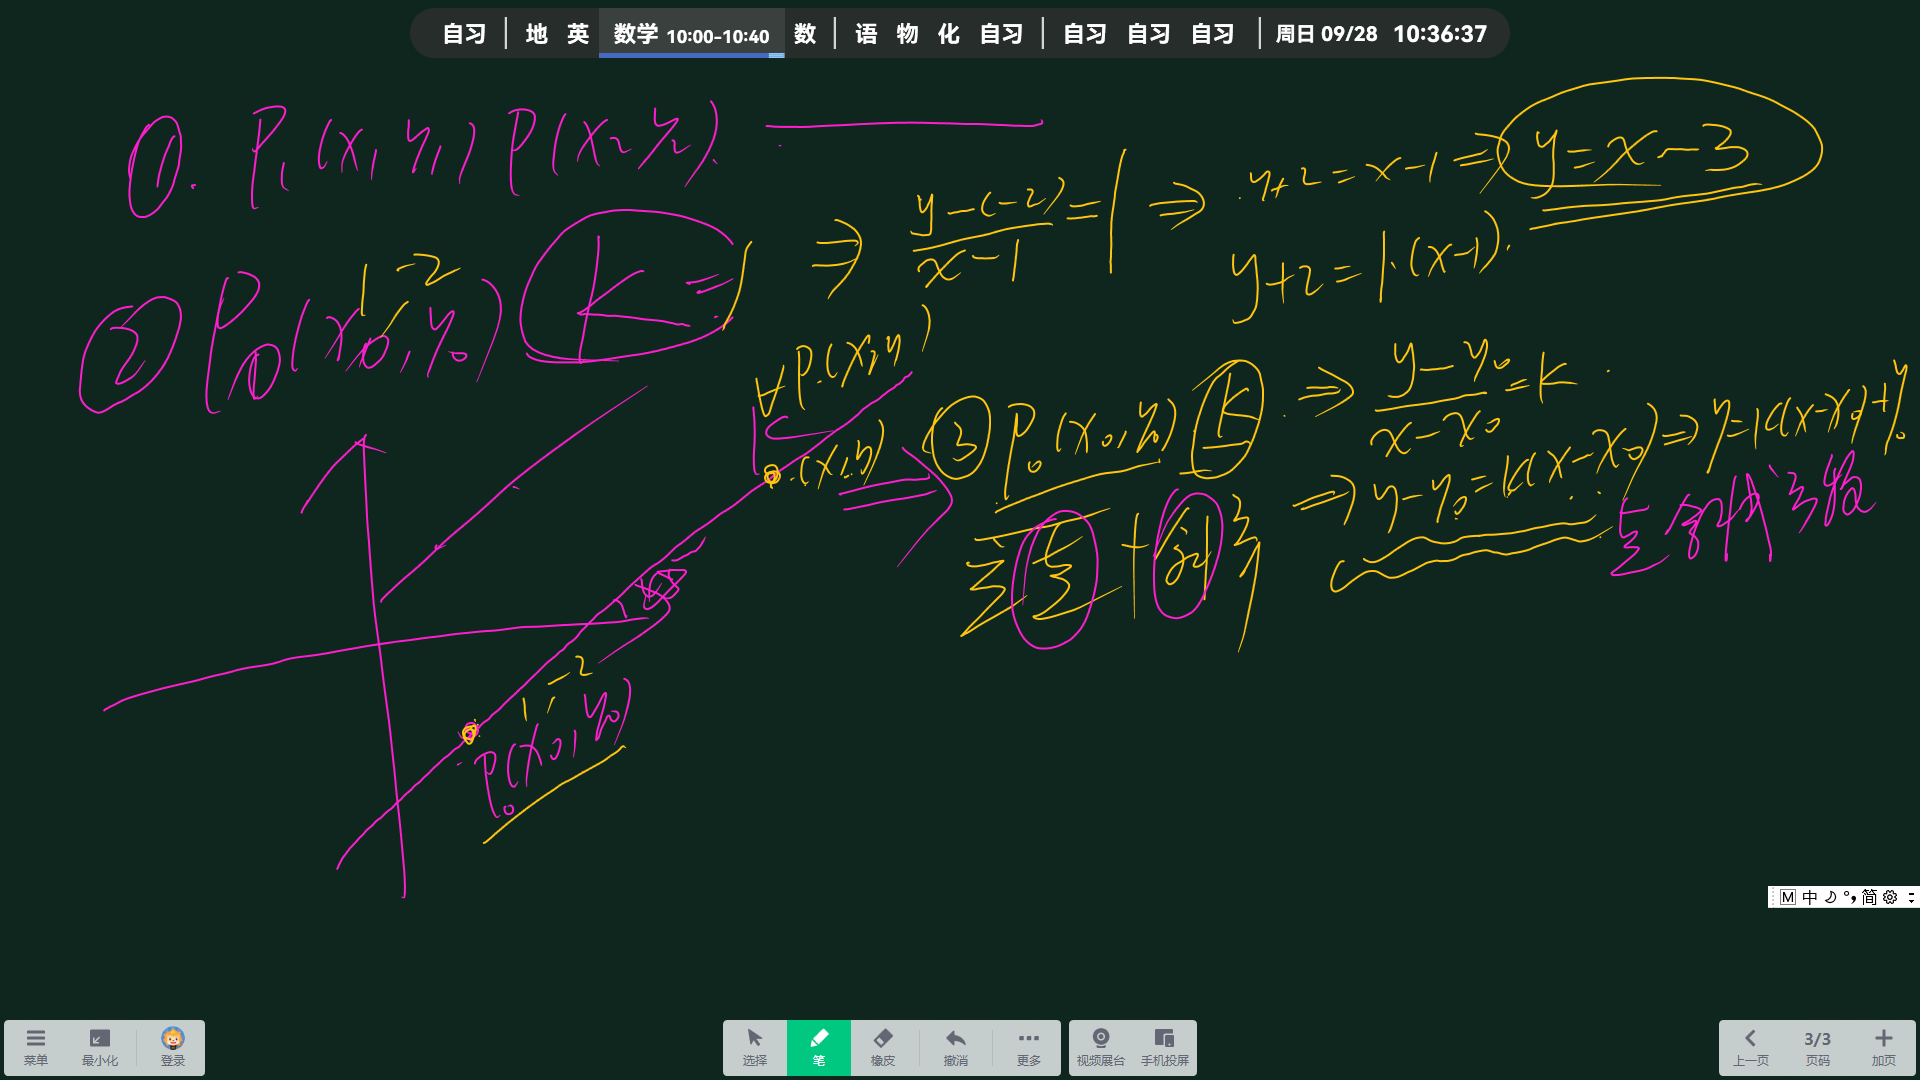 自习 | 地 英 数学 10:00-10:40 数 | 语 物 化 自习 | 自习 自习 自习 | 周日 09/28 10:36:37
①. P₁(x₁y₁) P(x₂y₂).
② P₀(x₀,y₀) K=1 ⇒ y-(-2)/x-1=1 ⇒ y+2=x-1 ⇒ y=x-3
1 -2
y+2=1·(x-1).
∀P.(x,y)
.(x,y)
③ P₀(x₀,y₀) K ⇒ y-y₀/x-x₀=K
⇒ y-y₀=k(x-x₀) ⇒ y=k(x-x₀)+y₀
+斜
1, -2
P₀(x₀,y₀)
M 中 简
菜单 最小化 登录 选择 笔 橡皮 撤消 更多 视频展台 手机投屏 上一页 3/3 页码 加页